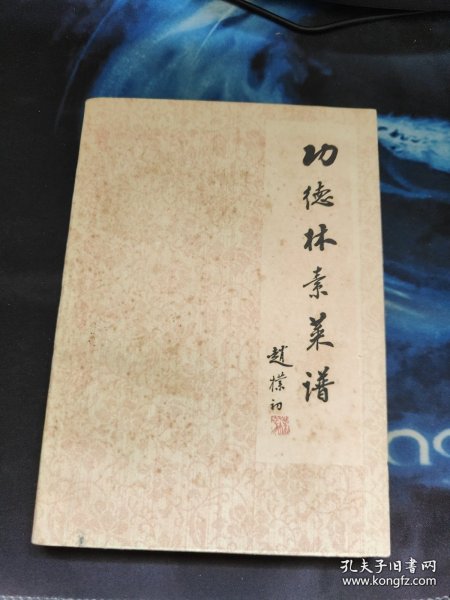 功德林素菜谱
趙樸初
孔夫子旧书网
www.kongfz.com